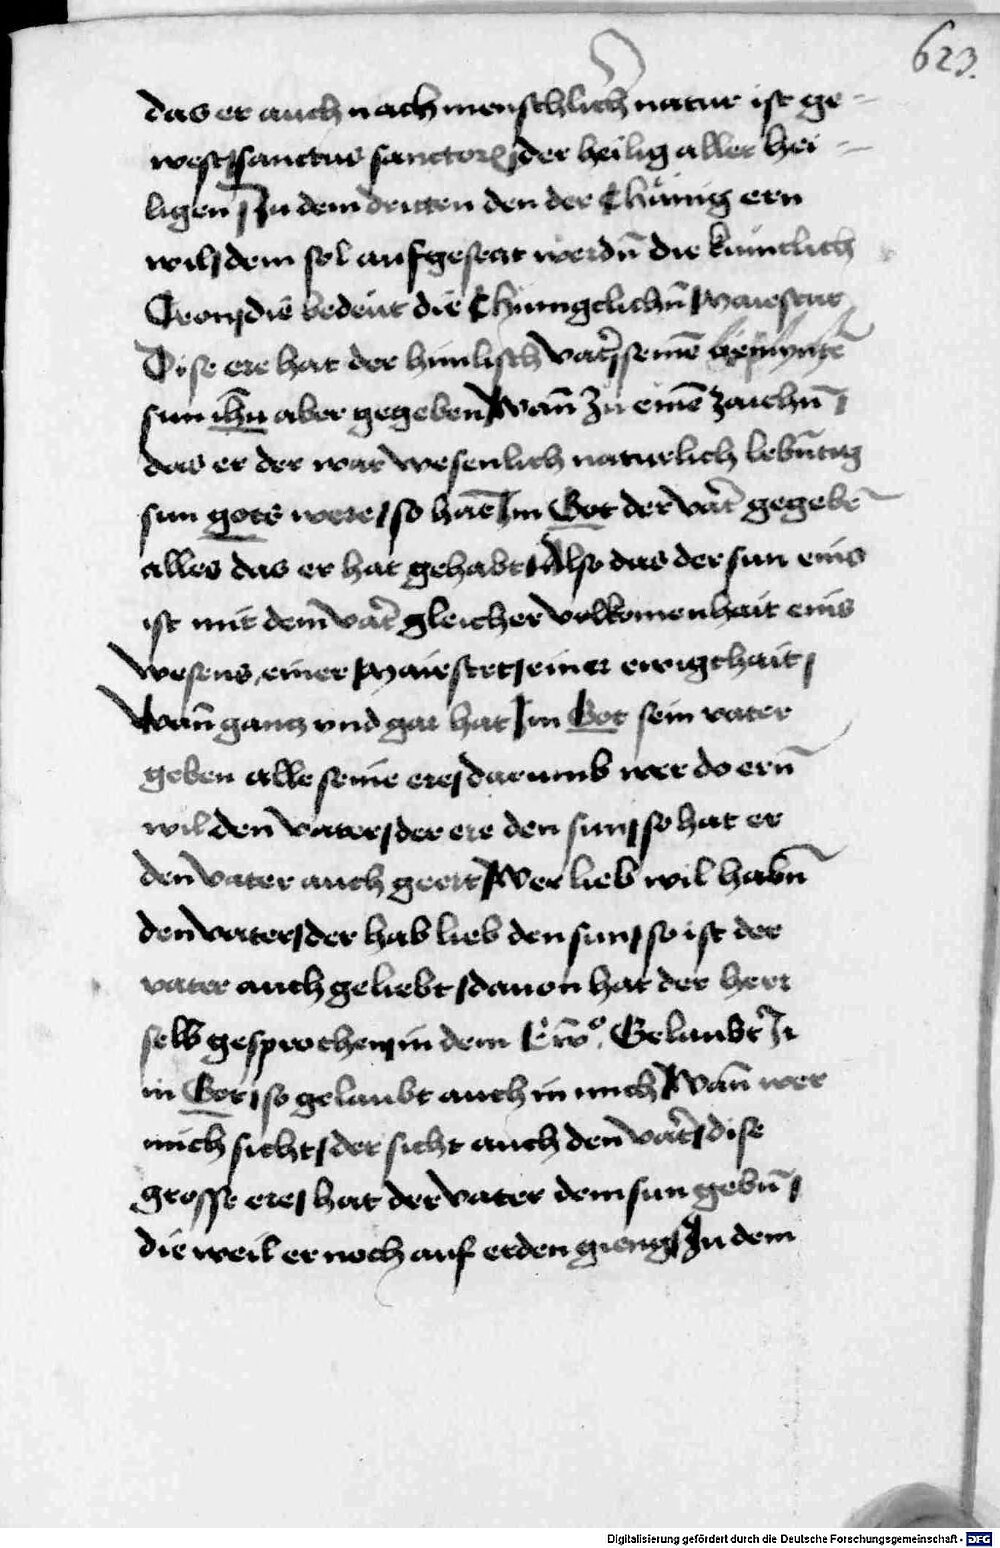 623.
das er auch nach menschlicher natur ist ge-
west sanctus sanctorum der heilig aller hei-
ligen Zu dem dritten den der Chünig ern
wil dem sol aufgesetzt werdñ die kunclich
Cron die bedeut die Chünigclichñ Maiestat
Dise ere hat der himlisch vatr seinē
sun ihu aber gegeben Wañ zu einē zaichñ
das er der war wesenlich naturlich lebñtig
sun gots were so hat Im Got der vatr gegebē
alles das er hat gehabt Also das der sun eins
ist mit dem vatr gleicher volkomenhait eins
wesens einer Maiestet einer ewigkhait
Wañ gantz vnd gar hat Im Got sein vater
geben alle seine ere darumb wer do erñ
wil den vater der ere den sun so hat er
den vater auch geert Wer lieb wil habñ
den vater der hab lieb den sun so ist der
vater auch geliebt dauon hat der herr
selb gesprochen in dem Gelaubt Ir
in Got so gelaubt auch in mich Wañ wer
mich sicht der sicht auch den vatr dise
grosse ere hat der vater dem sun gebñ
die weil er noch auf erden gieng Zu dem
Digitalisierung gefördert durch die Deutsche Forschungsgemeinschaft - DFG